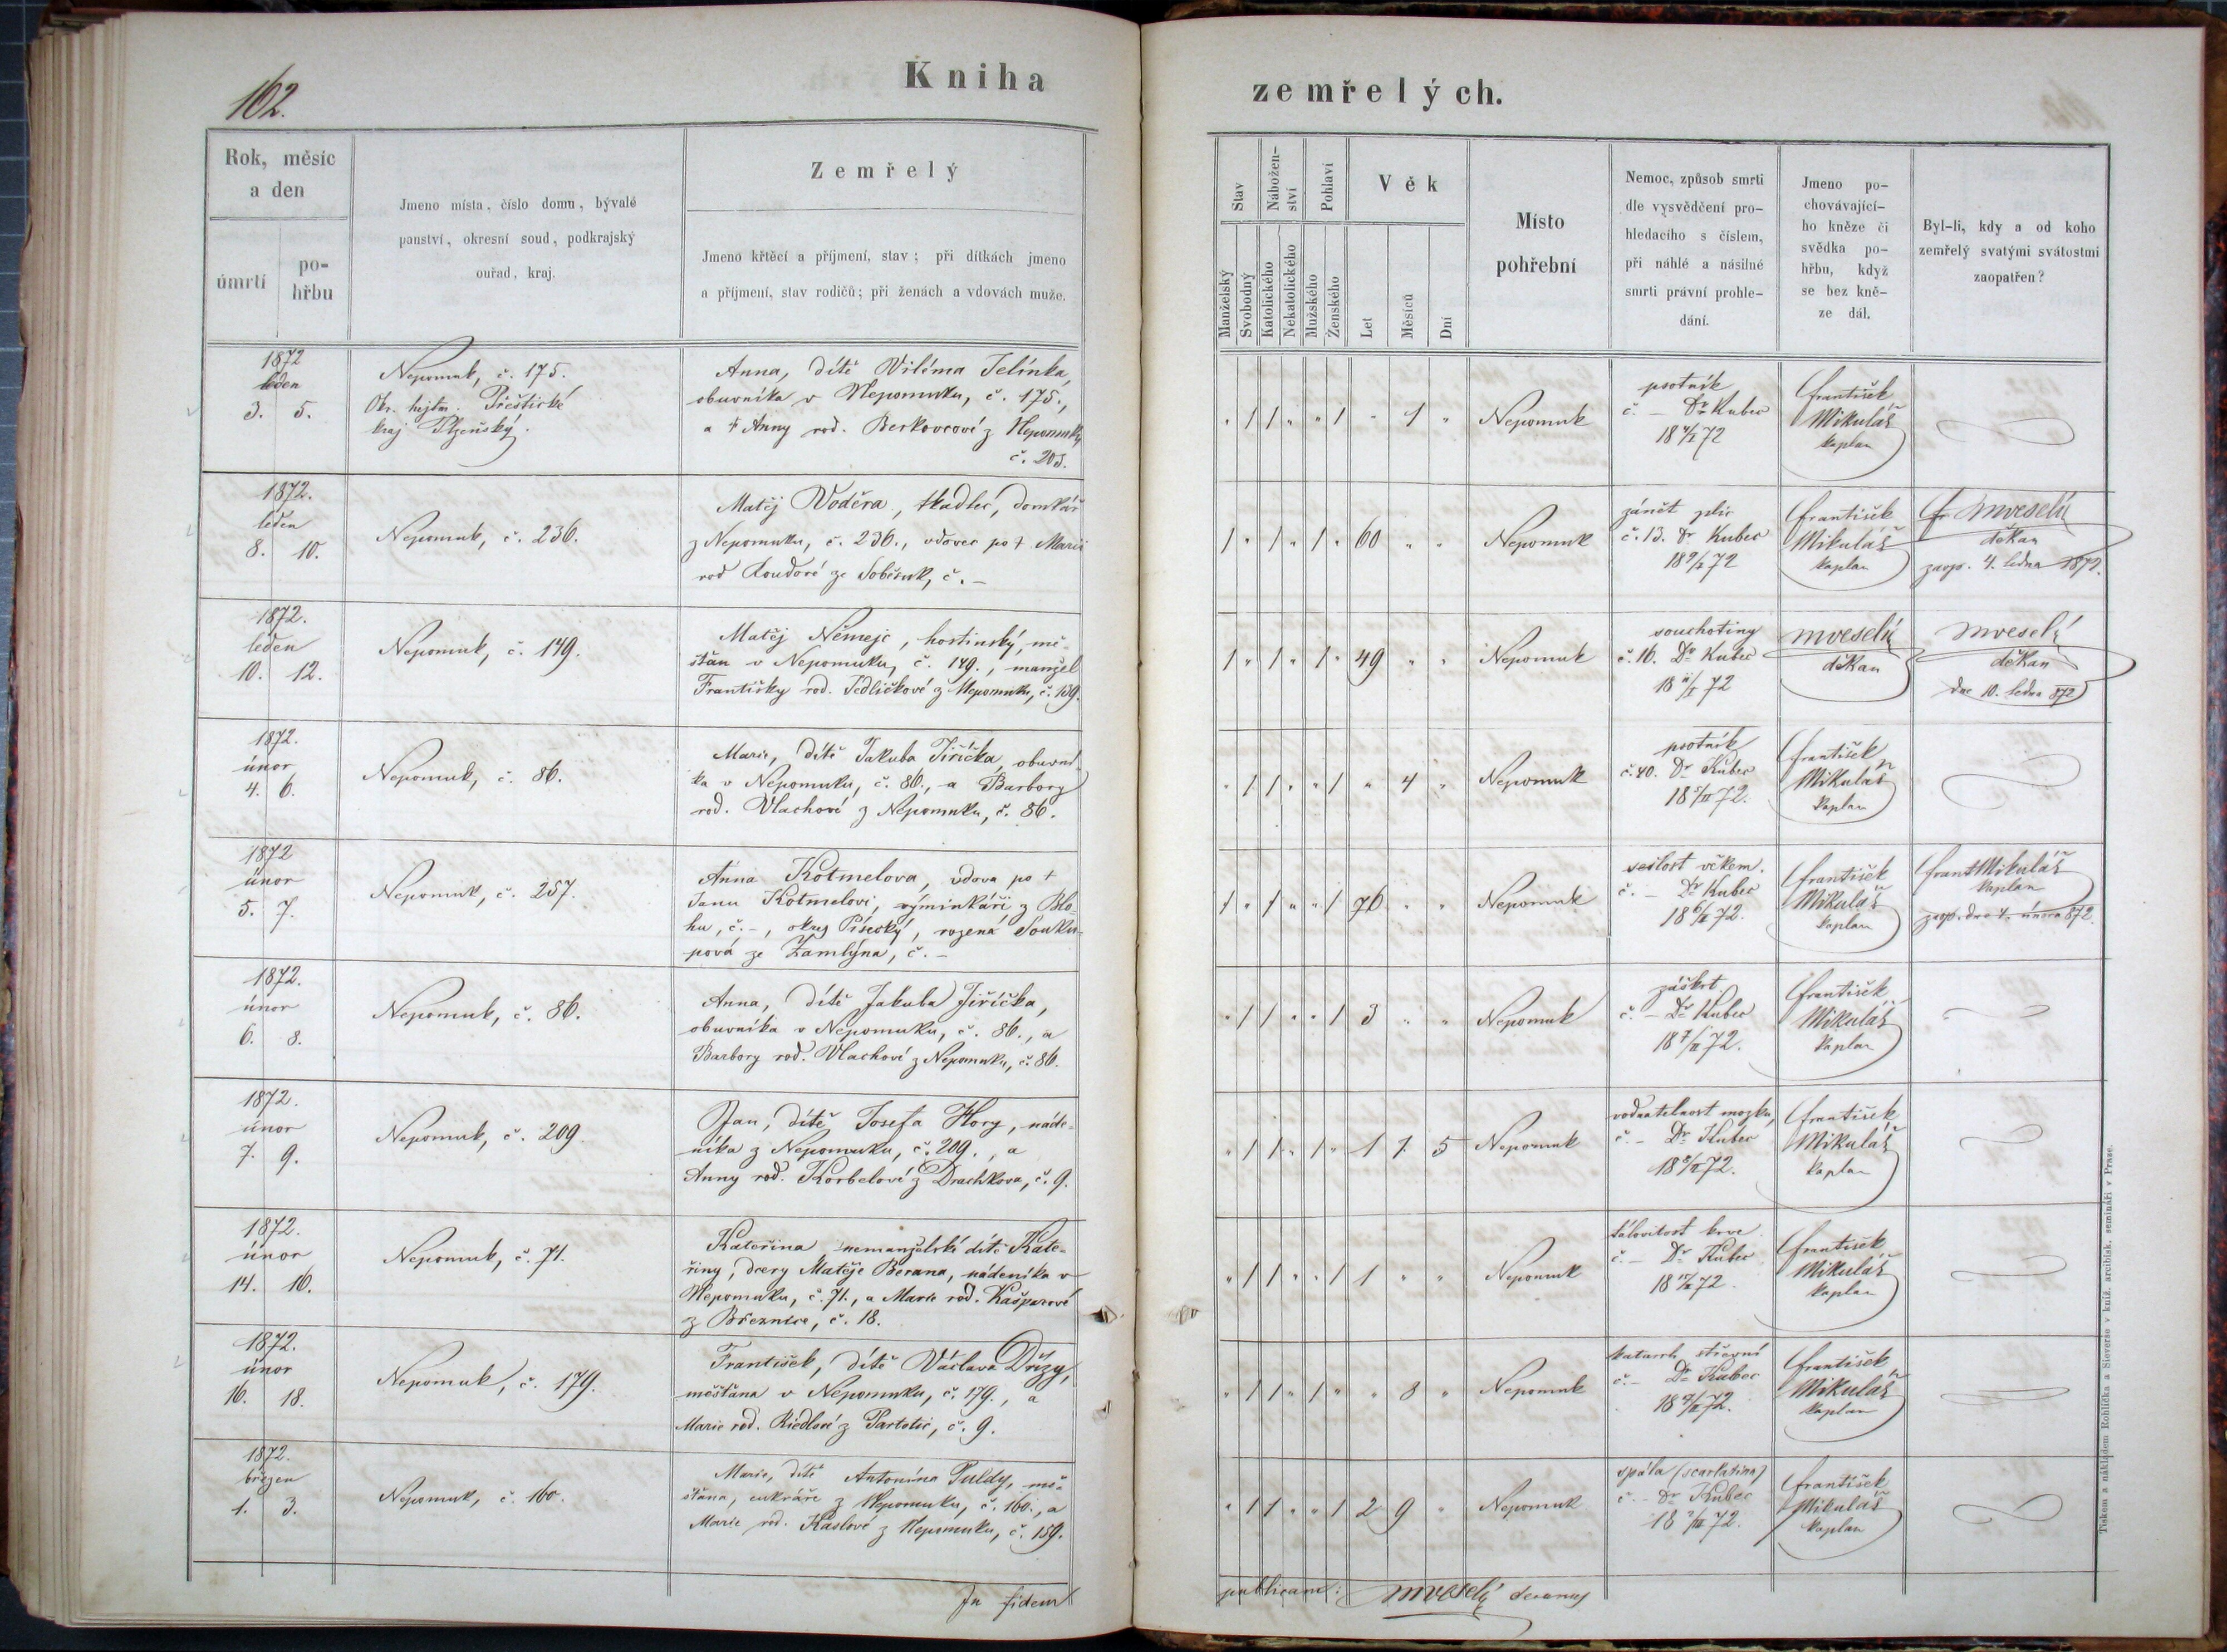 162.
Kniha zemřelých.
Rok, měsíc
a den
úmrtí
po-
hřbu
Jmeno místa, číslo domu, bývalé
panství, okresní soud, podkrajský
ouřad, kraj.
Zemřelý
Jmeno křtěcí a příjmení, stav; při dítkách jmeno
a příjmení, stav rodičů; při ženách a vdovách muže.
Stav
Manželský
Svobodný
Nábožen-
ství
Katolického
Nekatolického
Pohlaví
Mužského
Ženského
Věk
Let
Měsíců
Dní
Místo
pohřební
Nemoc, způsob smrti
dle vysvědčení pro-
hledacího s číslem,
při náhlé a násilné
smrti právní prohle-
dání.
Jmeno po-
chovávající-
ho kněze či
svědka po-
hřbu, když
se bez kně-
ze dál.
Byl-li, kdy a od koho
zemřelý svatými svátostmi
zaopatřen?
1872
leden
3. 5.
Nepomuk, č. 175.
Okr. hejtm. Přeštické
kraj Plzeňský.
Anna, dítě Viléma Jelínka,
obuvníka v Nepomuku, č. 175.,
a † Anny rod. Berkovcové z Nepomuku
č. 205.
" 1 1 " " 1 " 1 "
Nepomuk
psotník
č. – Dr Kubec
18 4/I 72
František
Mikuláš
kaplan
1872.
leden
8. 10.
Nepomuk, č. 236.
Matěj Voděra, tkadlec, domkář
z Nepomuku, č. 236., vdovec po † Marii
rod Koudové ze Soběsuk, č. –
1 " 1 " 1 " 60 " "
Nepomuk
zánět plic
č. 13. Dr Kubec
18 9/I 72
František
Mikuláš
kaplan
Fr. MVeselý
děkan
zaop. 4. ledna 1872.
1872.
leden
10. 12.
Nepomuk, č. 149.
Matěj Němejc, hostinský, mě-
šťan v Nepomuku, č. 149., manžel
Františky rod. Jedličkové z Nepomuku, č. 159.
1 " 1 " 1 " 49 " "
Nepomuk
souchotiny
č. 16. Dr Kubec
18 11/I 72
MVeselý
děkan
MVeselý
děkan
dne 10. ledna 872
1872.
únor
4. 6.
Nepomuk, č. 86.
Marie, dítě Jakuba Jiříčka, obuvní-
ka v Nepomuku, č. 86., a Barbory
rod. Vlachové z Nepomuku, č. 86.
" 1 1 " " 1 " 4 "
Nepomuk
psotník
č. 40. Dr Kubec
18 5/II 72.
František
Mikuláš
kaplan
1872
únor
5. 7.
Nepomuk, č. 257.
Anna Kotmelova, vdova po †
Janu Kotmelovi, výminkáři z Blo-
hu, č. –, okres Písecký, rozená Souku-
pová ze Zamlýna, č. –
1 " 1 " " 1 76 " "
Nepomuk
sešlost věkem.
č. – Dr Kubec
18 6/II 72.
František
Mikuláš
kaplan
Frant Mikuláš
kaplan
zaop. dne 4. února 872
1872.
únor
6. 8.
Nepomuk, č. 86.
Anna, dítě Jakuba Jiříčka,
obuvníka v Nepomuku, č. 86., a
Barbory rod. Vlachové z Nepomuku, č. 86.
" 1 1 " " 1 3 " "
Nepomuk
záškrt
č. – Dr Kubec
18 7/II 72.
František
Mikuláš
kaplan
1872.
únor
7. 9.
Nepomuk, č. 209.
Jan, dítě Josefa Hory, náde-
níka z Nepomuku, č. 209., a
Anny rod. Korbelové z Drachkova, č. 9.
" 1 1 " 1 " 1 1 5
Nepomuk
vodnatelnost mozku,
č. – Dr Kubec
18 8/II 72.
František
Mikuláš
kaplan
1872.
únor
14. 16.
Nepomuk, č. 71.
Kateřina nemanželské dítě Kate-
řiny, dcery Matěje Berana, nádeníka v
Nepomuku, č. 71., a Marie rod. Kašparové
z Březnice, č. 18.
" 1 1 " " 1 1 " "
Nepomuk
krve
č. – Dr Kubec
František
Mikuláš
kaplan
1872.
únor
16. 18.
Nepomuk, č. 179.
František, dítě Václava Držy,
měšťana v Nepomuku, č. 179., a
Marie rod. Riedlové z Partoltic, č. 9.
" 1 1 " 1 " " 8 "
Nepomuk
katarrh střevní
č. – Dr Kubec
18 17/II 72.
František
Mikuláš
kaplan
1872.
březen
1. 3.
Nepomuk, č. 160.
Marie, dítě Antonína Puldy, mě-
šťana, cukráře z Nepomuku, č. 160., a
Marie rod. Kaslové z Nepomuku, č. 159.
" 1 1 " " 1 2 9 "
Nepomuk
spála (scarlatina)
č. – Dr Kubec
18 2/III 72.
František
Mikuláš
kaplan
In fidem publicam: MVeselý decanus
Tiskem a nákladem Rohlíčka a Sieverse v kníž. arcibisk. semináři v Praze.